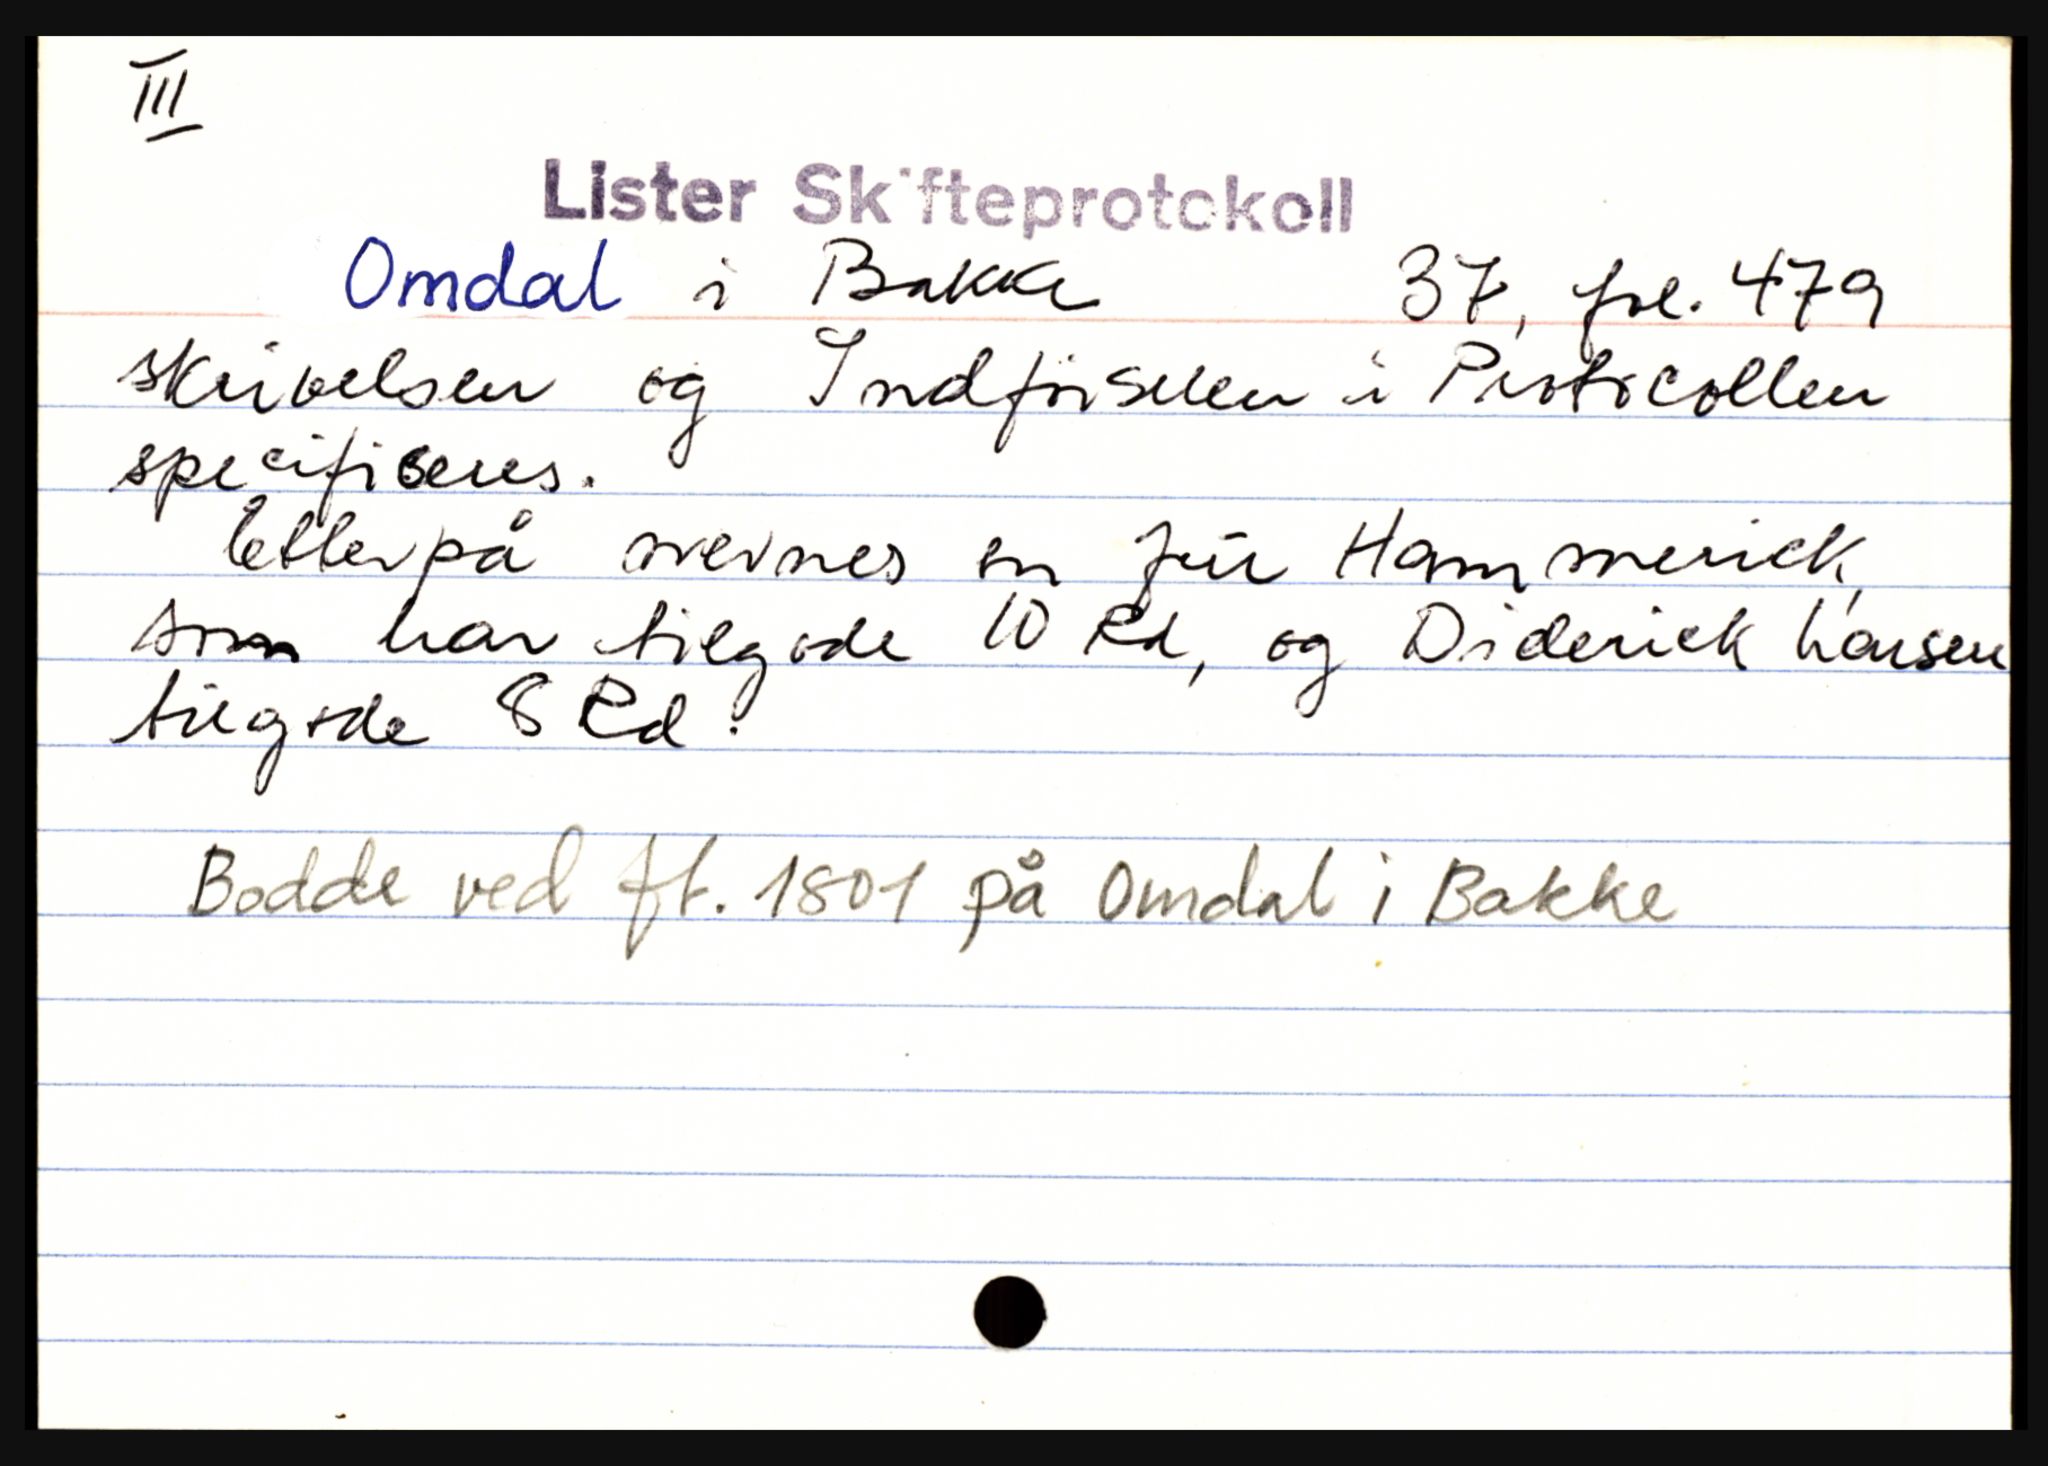 III
Lister Skifteprotokoll
Omdal i Bakke 37, fol. 479
skrivelsen og Indførselen i Protocollen
specificeres.
Etterpå nevnes en jur Hammerick,
som har tilgode 10 Rd, og Diderick Larsen
tilgode 8 Rd.
Bodde ved ft. 1801 på Omdal i Bakke